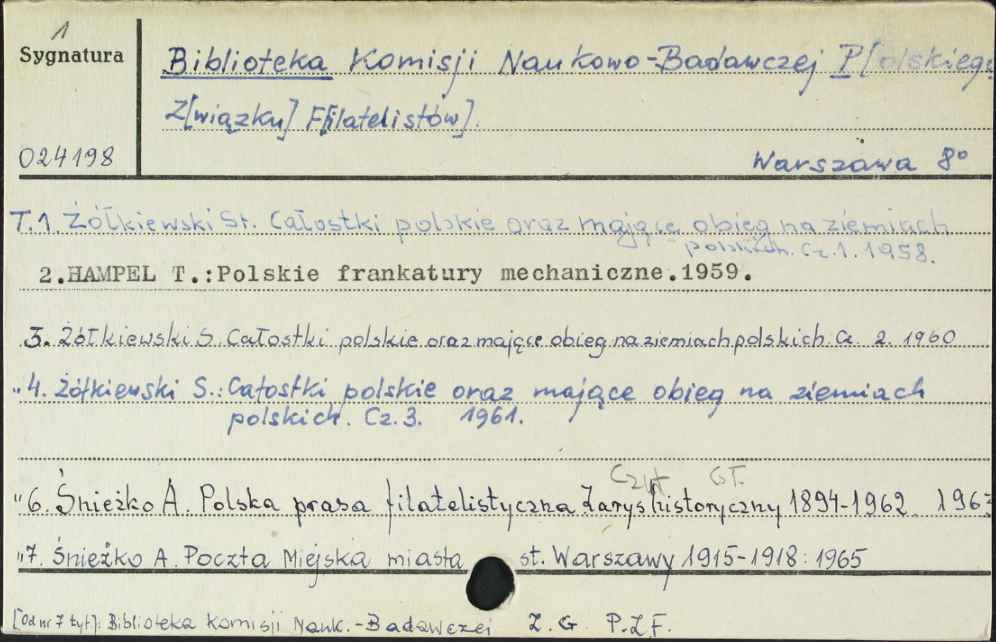 1
Sygnatura
Biblioteka Komisji Naukowo-Badawczej P[olskiego
Z[wiązku] F[ilatelistów].
024198
Warszawa 8°
T.1. Żółkiewski St. Całostki polskie oraz mające obieg na ziemiach
polskich. Cz. 1. 1958.
2.HAMPEL T.:Polskie frankatury mechaniczne.1959.
3. Żółkiewski S. Całostki polskie oraz mające obieg na ziemiach polskich. Cz. 2. 1960
"4. Żółkiewski S.: Całostki polskie oraz mające obieg na ziemiach
polskich. Cz. 3. 1961.
Czyt GŁ.
"6. Śnieżko A. Polska prasa filatelistyczna Zarys historyczny 1894-1962. 1963
"7. Śnieżko A. Poczta Miejska miasta st. Warszawy 1915-1918. 1965
[Od nr 7 tyt]: Biblioteka Komisji Nauk.-Badawczej Z. G. P.Z.F.